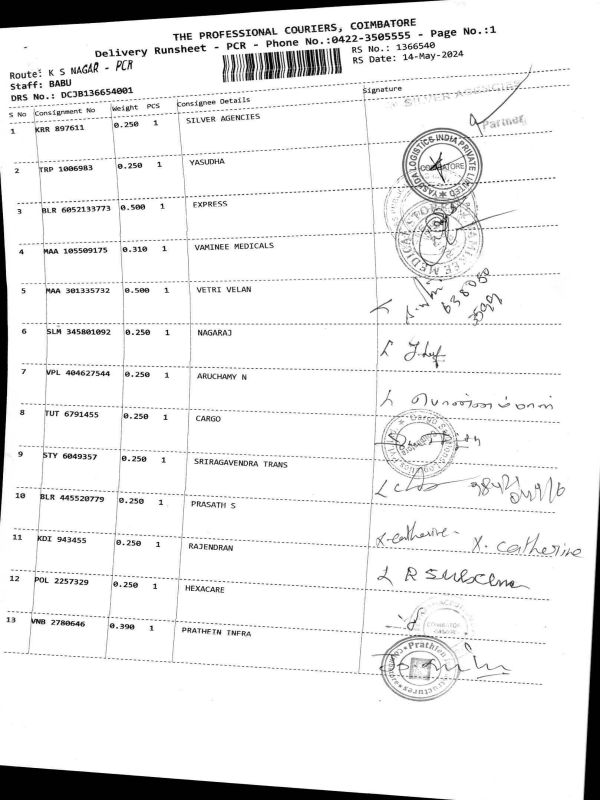 THE PROFESSIONAL COURIERS, COIMBATORE
Delivery Runsheet - PCR - Phone No.:0422-3505555 - Page No.:1
Route: K S NAGAR - PCR
RS No.: 1366540
Staff: BABU
RS Date: 14-May-2024
DRS No.: DCJB136654001
S No Consignment No Weight PCS Consignee Details Signature
1 KRR 897611 0.250 1 SILVER AGENCIES
SILVER AGENCIES
Partner
2 TRP 1006983 0.250 1 YASUDHA
YASKGA LOGISTICS INDIA PRIVATE LIMITED
COIMBATORE
3 BLR 6052133773 0.500 1 EXPRESS
4 MAA 105509175 0.310 1 VAMINEE MEDICALS
5 MAA 301335732 0.500 1 VETRI VELAN
638050
6 SLM 345801092 0.250 1 NAGARAJ
7 VPL 404627544 0.250 1 ARUCHAMY N
8 TUT 6791455 0.250 1 CARGO
9 STY 6049357 0.250 1 SRIRAGAVENDRA TRANS
10 BLR 445520779 0.250 1 PRASATH S
x-catherine- X. catherine
11 KDI 943455 0.250 1 RAJENDRAN
12 POL 2257329 0.250 1 HEXACARE
13 VNB 2780646 0.390 1 PRATHEIN INFRA